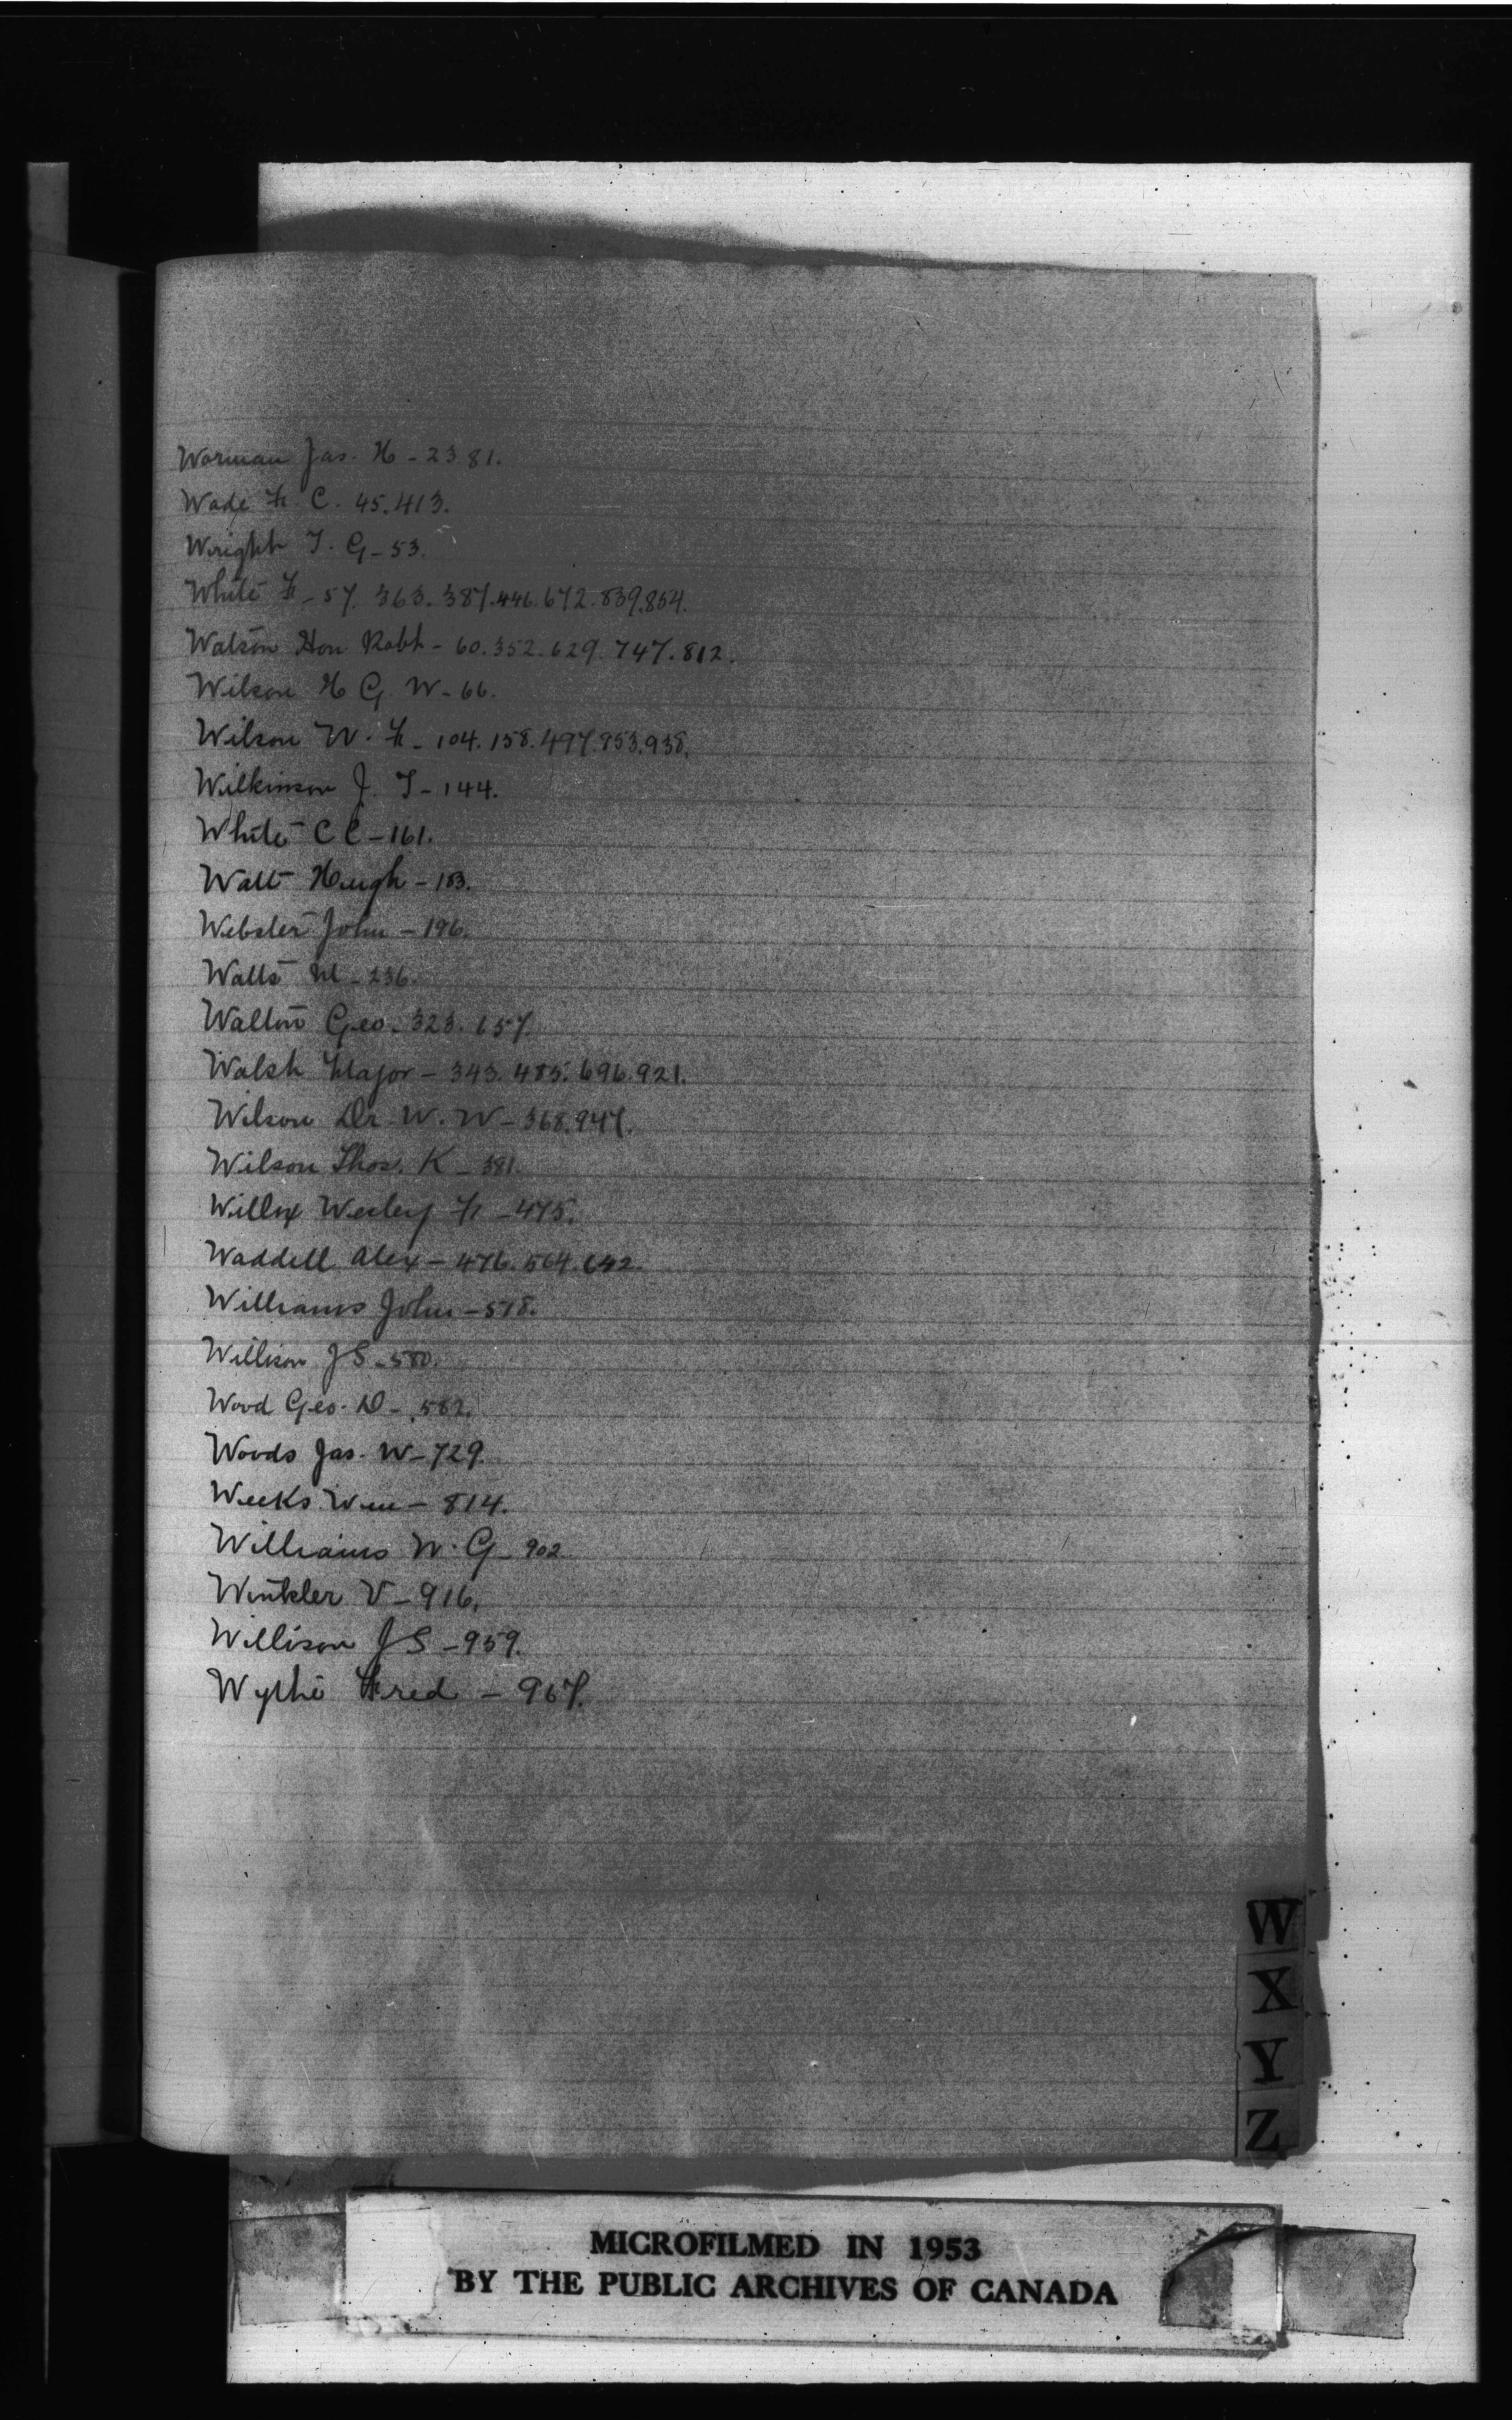 Worman Jas. H - 2381.
Wade F. C. 45.413.
Wright T. G - 53.
White F - 57. 363. 387.446.672.839.854.
Watson Hon Robt - 60.352.629.747.812.
Wilson H G W - 66.
Wilson W. F - 104.158.497.853.938.
Wilkinson J. T - 144.
White C C - 161.
Watt Hugh - 183.
Webster John - 196.
Watts M - 236.
Walton Geo - 323. 657.
Walsh Major - 343.485.696.921.
Wilson Dr W. W - 368.947.
Wilson Thos. K - 381.
Willox Wesley F - 475.
Waddell Alex - 476.564.642.
Williams John - 578.
Willison J S - 580.
Wood Geo. D - 582.
Woods Jas. W - 729.
Weeks Wm - 814.
Williams W. G - 902
Winkler V - 916.
Willison J S - 959.
Wythe Fred - 967.
W
X
Y
Z
MICROFILMED IN 1953
BY THE PUBLIC ARCHIVES OF CANADA